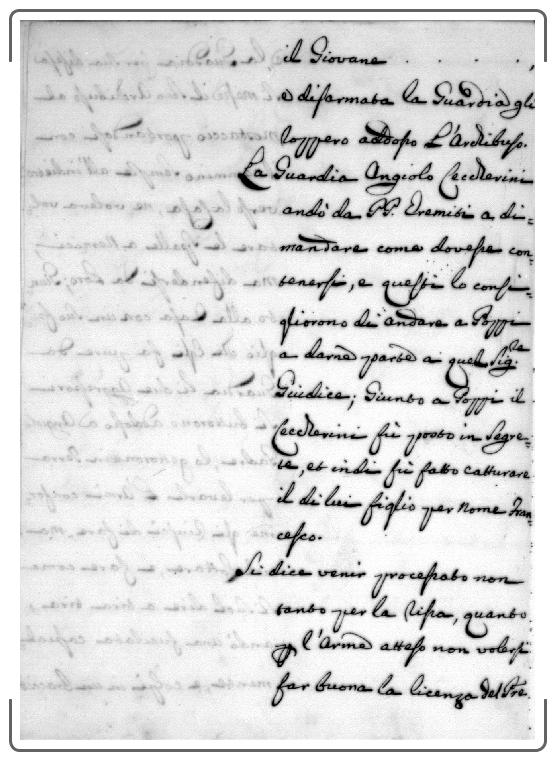 il Giovane . . . . ,
e disarmata la Guardia gli
roppero addosso L'Archibuso.
La Guardia Angiolo Ceccherini
andò da PP. Eremiti a di-
mandare come dovesse con-
tenersi, e questi lo consi-
gliorono di andare a Poppi
a darne parte a quel Sig.re
Giudice; Giunto a Poppi il
Ceccherini fù posto in Segre-
te, et indi fù fatto catturare
il di lui figlio per nome Fran-
cesco.
Si dice venir processato non
tanto per la rissa, quanto
p l'Arme atteso non volersi
far buona la licenza del Pre.